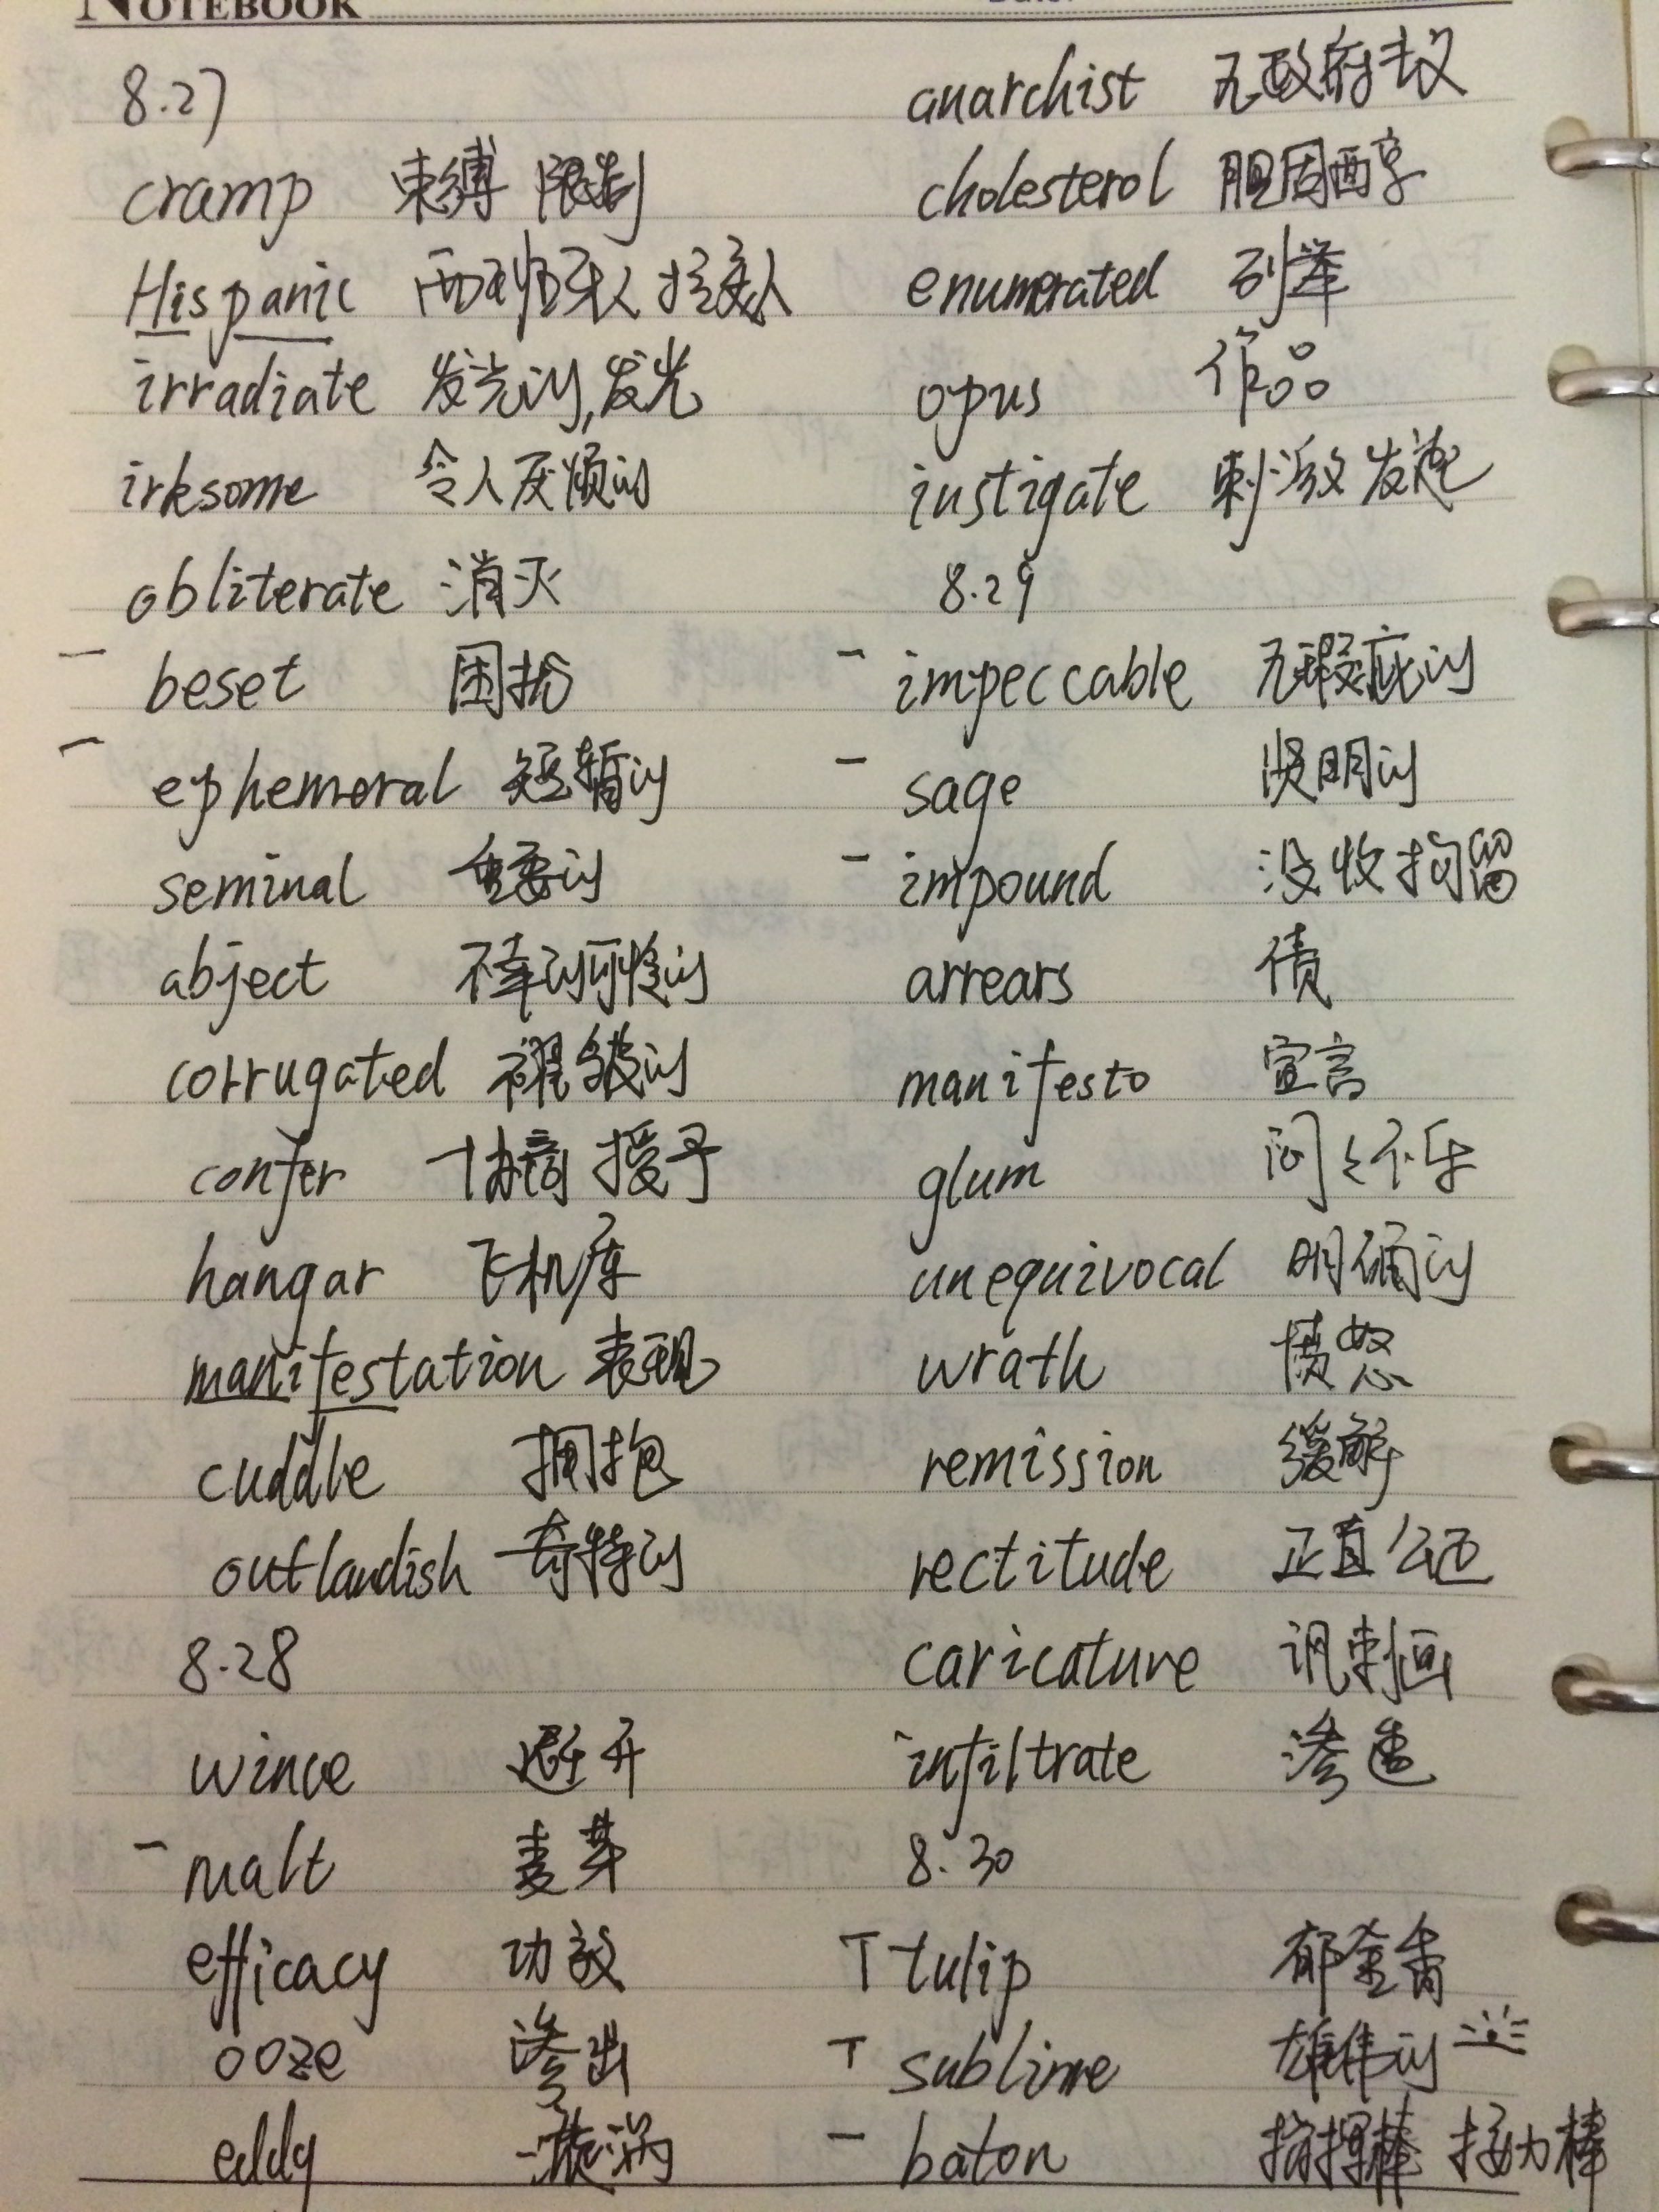 NOTEBOOK
8.27
cramp 束缚 限制
Hispanic 西班牙人 拉美人
irradiate 发光的,发光
irksome 令人厌烦的
obliterate 消灭
- beset 困扰
- ephemeral 短暂的
seminal 重要的
abject 不幸的可怜的
corrugated 褶皱的
confer 协商 授予
hangar 飞机库
manifestation 表现
cuddle 拥抱
outlandish 奇特的
8.28
wince 避开
- malt 麦芽
efficacy 功效
ooze 渗出
eddy 漩涡
anarchist 无政府主义
cholesterol 胆固醇
enumerated 列举
opus 作品
instigate 刺激 发起
8.29
- impeccable 无瑕疵的
- sage 贤明的
- impound 没收拘留
arrears 债
manifesto 宣言
glum 闷々不乐
unequivocal 明确的
wrath 愤怒
remission 缓解
rectitude 正直 公正
caricature 讽刺画
infiltrate 渗透
8.30
T tulip 郁金香
T sublime 雄伟的
- baton 指挥棒 接力棒